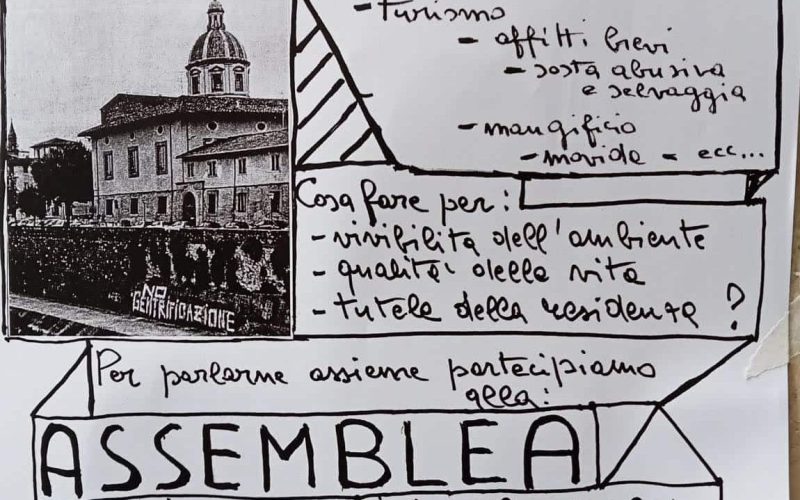 - turismo
- affitti brevi
- sosta abusiva
e selvaggia
- mangificio
- movida - ecc...
Cosa fare per:
- vivibilità dell'ambiente
- qualità della vita
- tutela della residenza ?
NO
GENTRIFICAZIONE
Per parlarne assieme partecipiamo
alla:
ASSEMBLEA